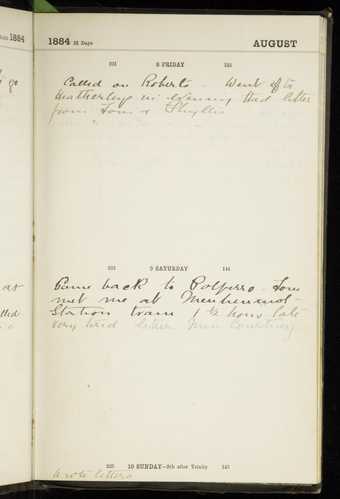 1884
1884 31 Days AUGUST
221 8 FRIDAY 145
go
Called on Roberts - Went off to
in evening Had letter
from Tom & Phyllis
222 9 SATURDAY 144
Came back to Polperro - Tom
met me at Menheniot
Station train 1½ hours late
very tired letter Courtney
223 10 SUNDAY—9th after Trinity 143
Wrote letters